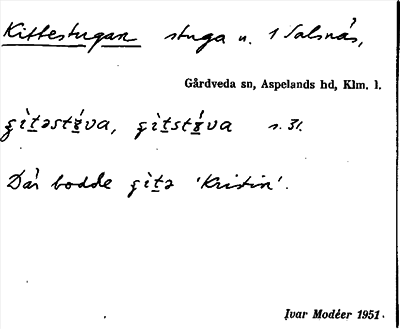 Kittestugan stuga u. 1 Salsnäs,
Gårdveda sn, Aspelands hd, Klm. l.
s. 31.
Där bodde 'Kristin'.
Ivar Modéer 1951.